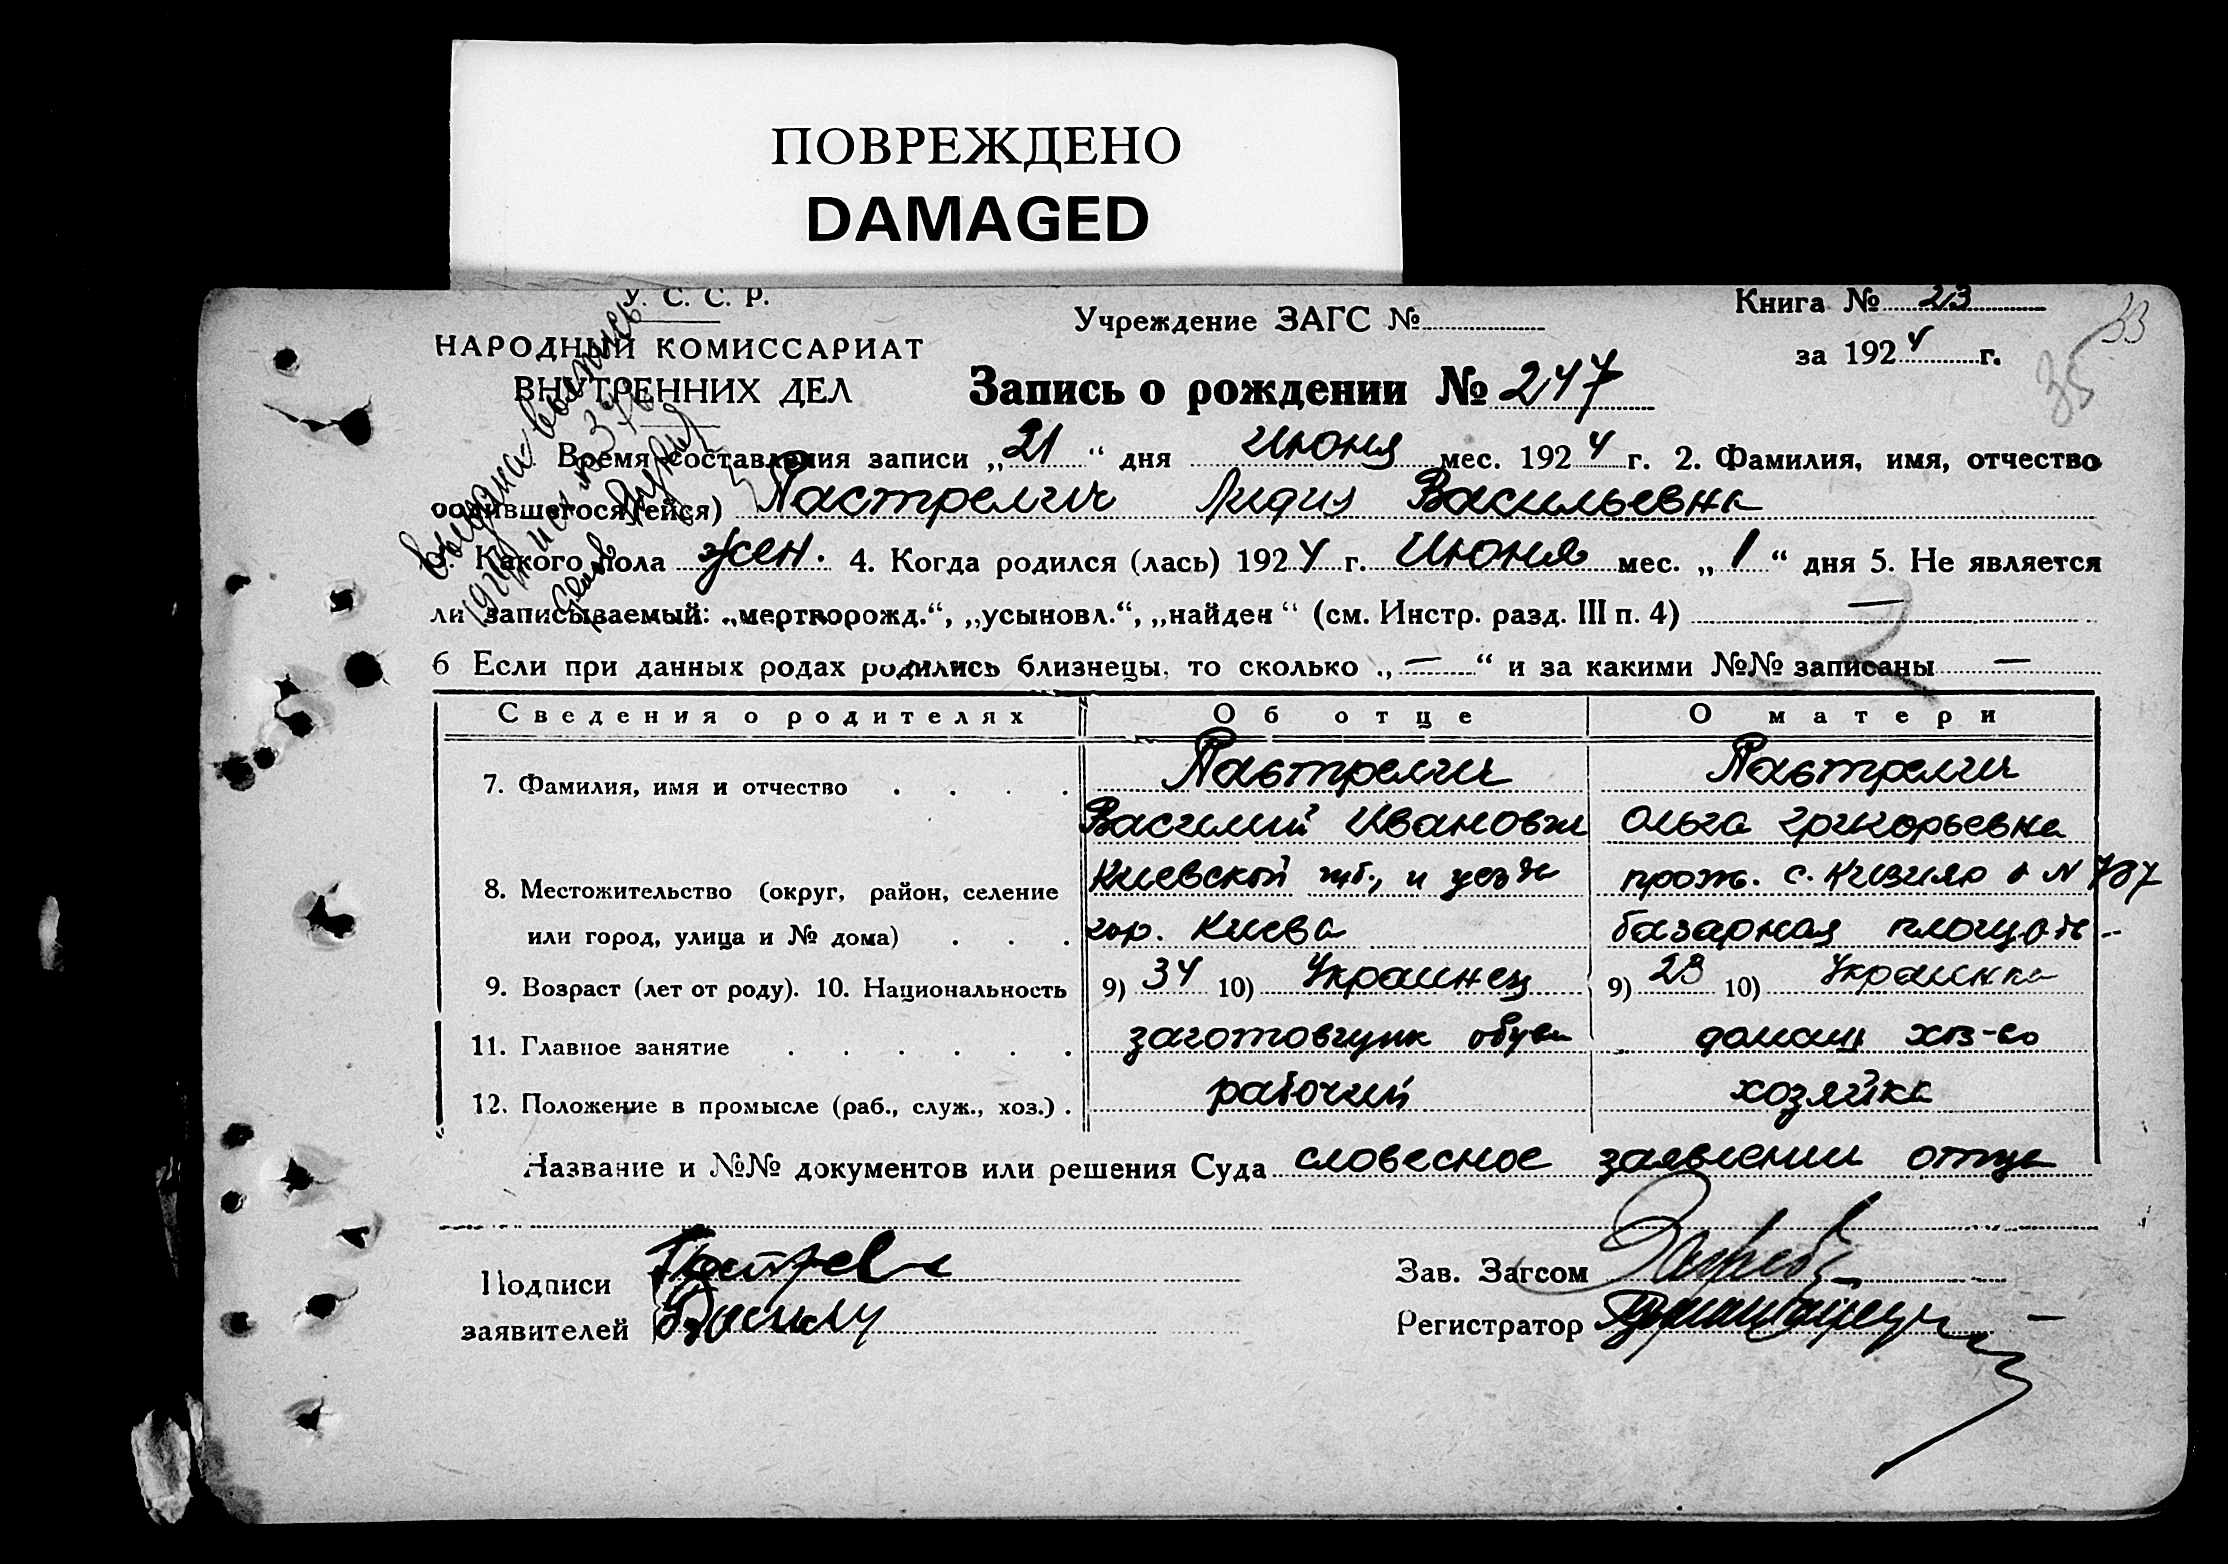 ПОВРЕЖДЕНО
DAMAGED
У. С. С. Р.
НАРОДНЫЙ КОМИССАРИАТ
ВНУТРЕННИХ ДЕЛ
Учреждение ЗАГС №
Книга № 23
за 1924 г.
33
35
Запись о рождении № 247
Выдана выпись
Время составления записи „21“ дня Июня мес. 1924 г. 2. Фамилия, имя, отчество
родившегося(ейся) Пастрелич Лидия Васильевна
Какого пола жен. 4. Когда родился (лась) 1924 г. Июня мес. „1“ дня 5. Не является
ли записываемый: „мертворожд.“, „усыновл.“, „найден“ (см. Инстр. разд. III п. 4) —
32
6 Если при данных родах родились близнецы, то сколько „—“ и за какими №№ записаны —
Сведения о родителях Об отце О матери
7. Фамилия, имя и отчество Пастрелич Пастрелич
Василий Иванович Ольга Григорьевна
8. Местожительство (округ, район, селение Киевской губ., и уезда прож. с. N 787
или город, улица и № дома) гор. Киева базарная площадь
9. Возраст (лет от роду). 10. Национальность 9) 34 10) Украинец 9) 23 10) Украинка
11. Главное занятие заготовщик обуви домаш хоз-во
12. Положение в промысле (раб., служ., хоз.) рабочий хозяйка
Название и №№ документов или решения Суда словесное заявлении отца
Подписи
заявителей
Зав. Загсом
Регистратор